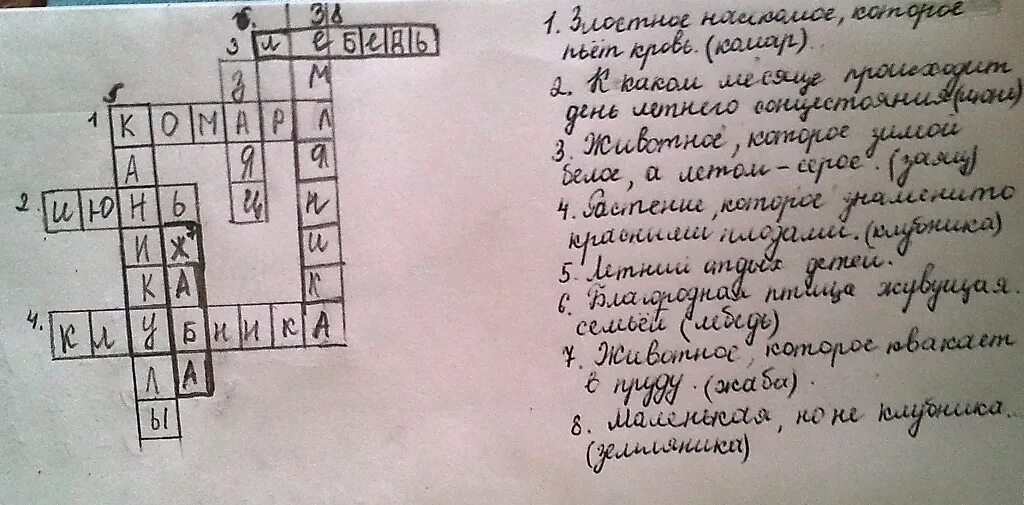 6. З 8
3 Л Е Б Е Д Ь
З М
5
1 К О М А Р Л
А Я Я
2. И Ю Н Ь Ц Н
И Ж 7 И
К А К
4. К Л У Б Н И К А
Л А
Ы
1. Злостное насикомое, которое
пьёт кровь. (комар).
2. К каком месяце происходит
день летнего сонцестояния (июнь)
3. Животное, которое зимой
белое, а летом - серое. (заяц)
4. Растение, которое знаменито
красными плозами. (клубника)
5. Летний отдых детей.
6. Благородная птица жувущая
семьёй (лебедь)
7. Животное, которое квакает
в пруду. (жаба).
8. Маленькая, но не клубника.
(земляника)